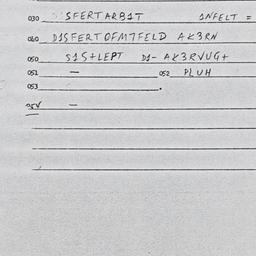 030 SFERTARB1T 1NFELT =
060 D1SFERTOFM7FELD AK3RN
050 S1S+LEPT D1- AK3RVUG+
051 — 052 PLUH
053 .
—